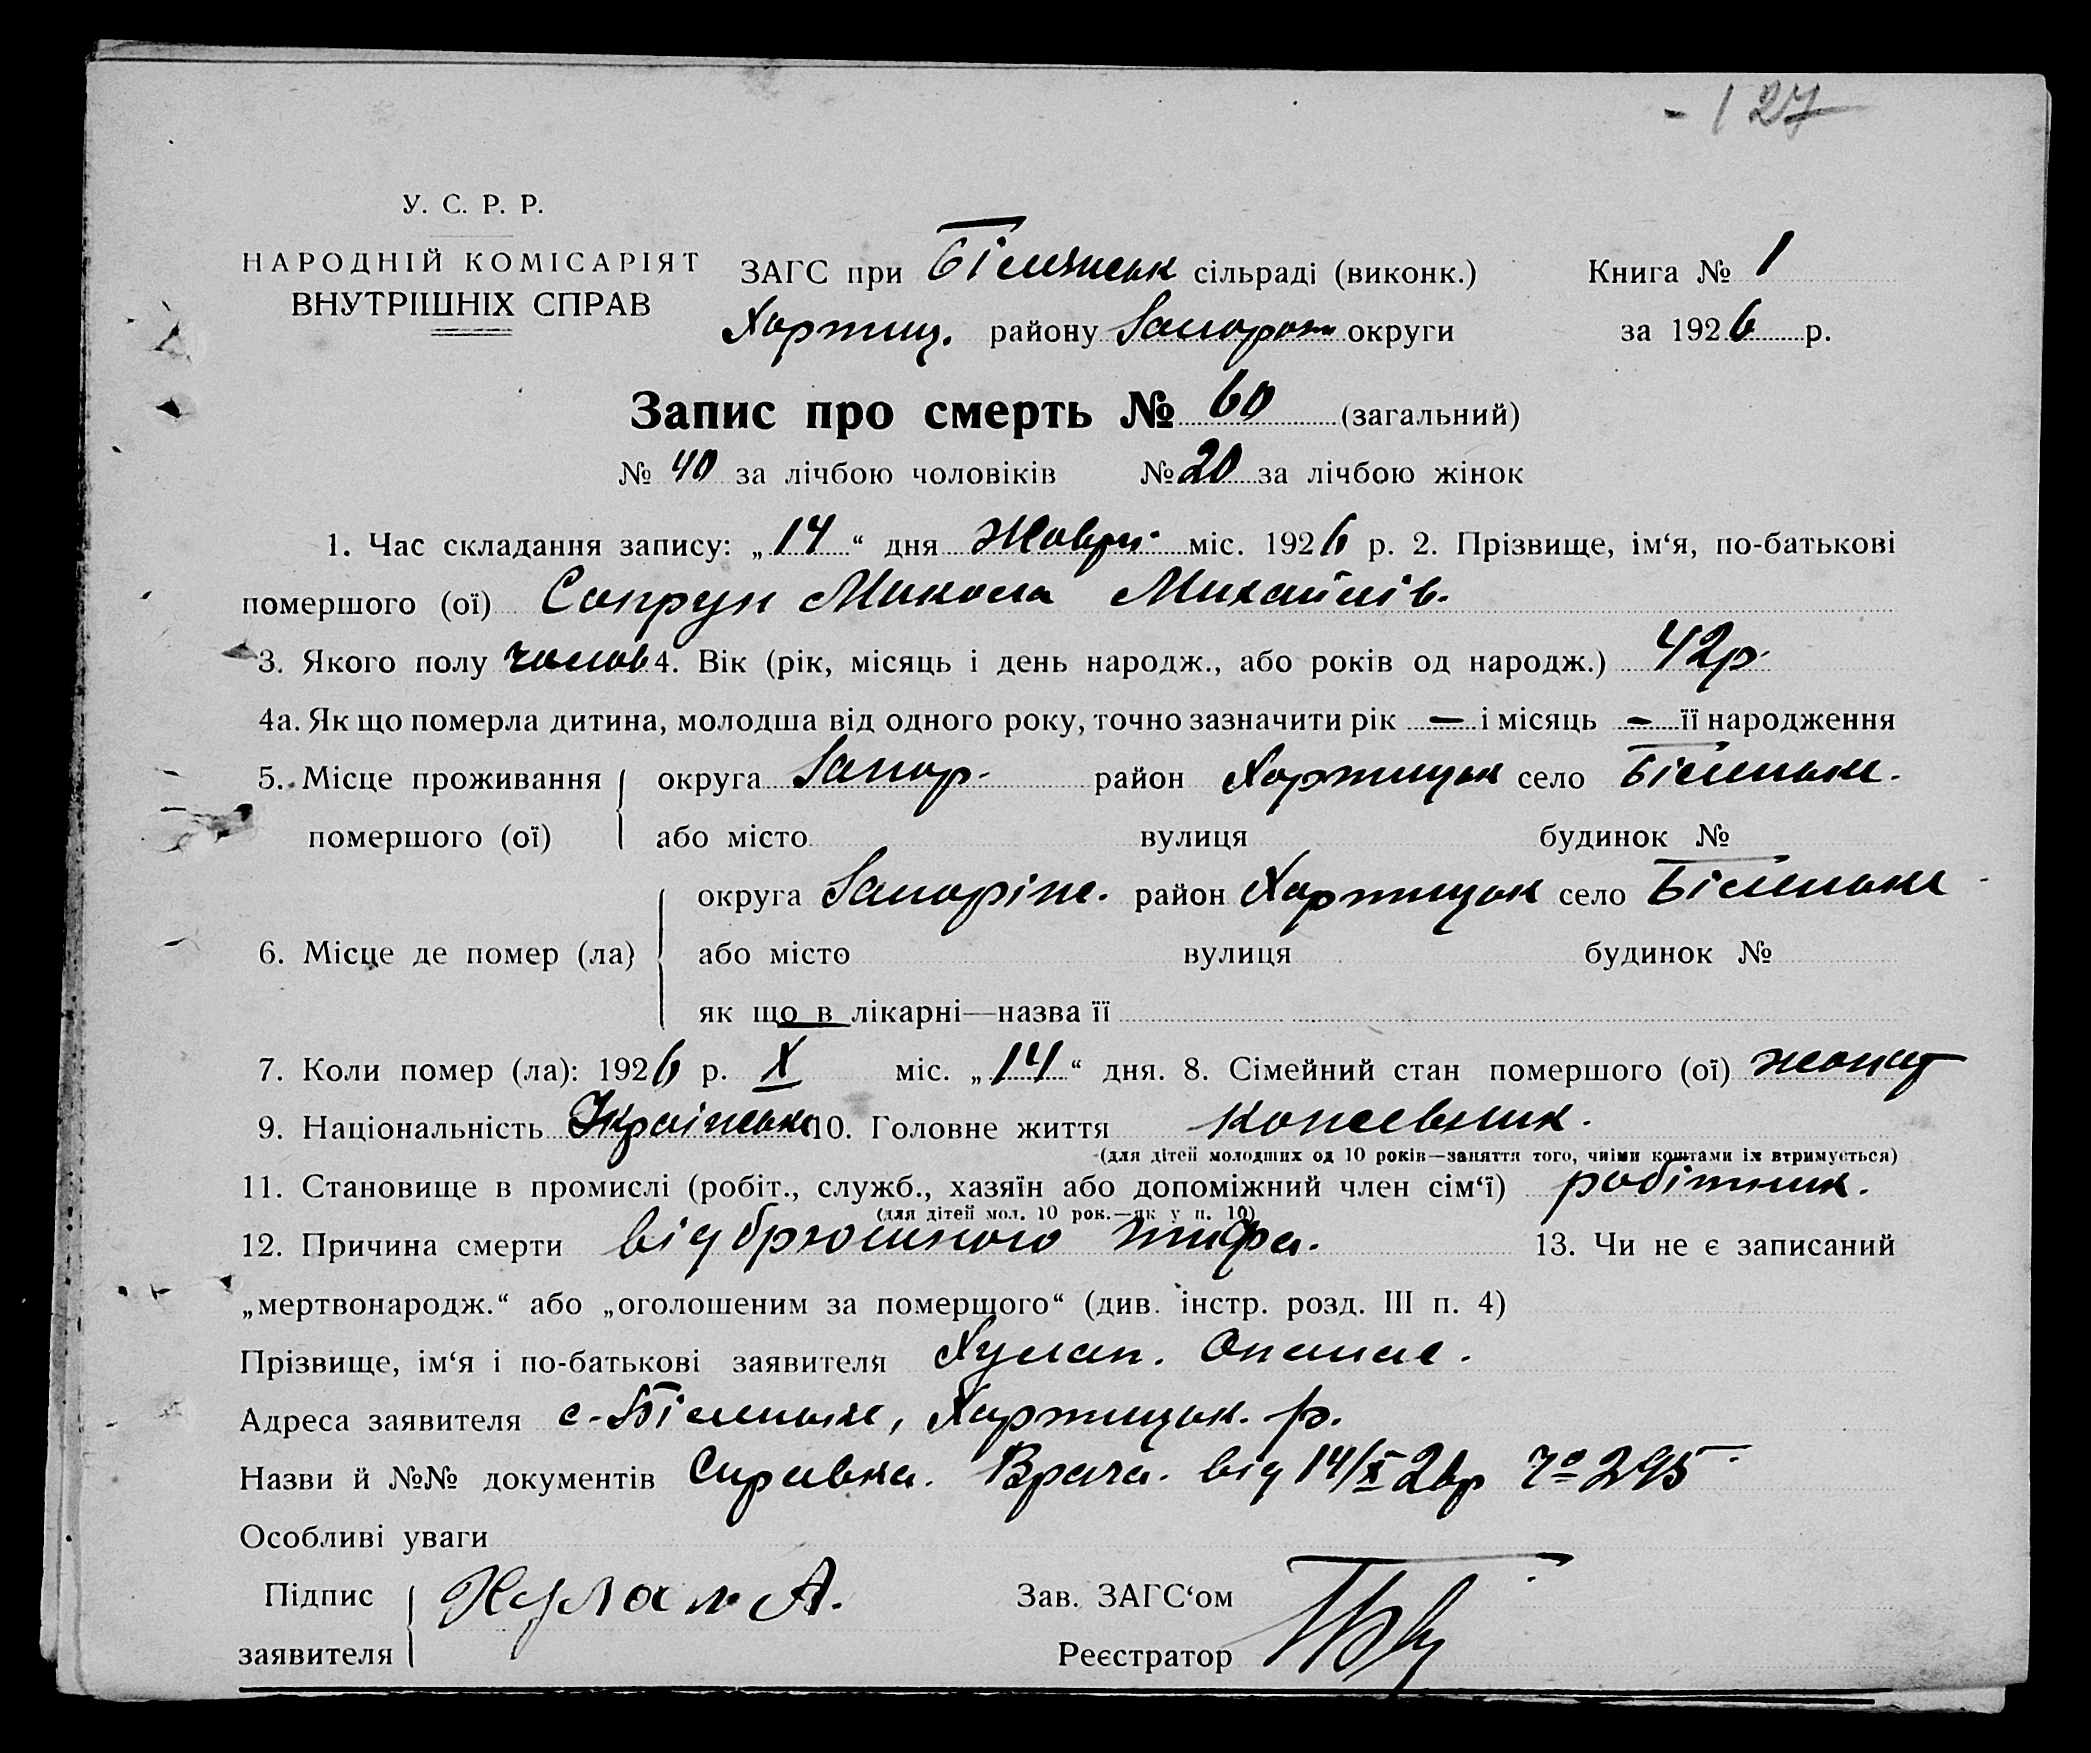 - 127
У. С. Р. Р.
НАРОДНІЙ КОМІСАРІЯТ
ВНУТРІШНІХ СПРАВ
ЗАГС при Біленьськ сільраді (виконк.) Книга № 1
Хортиц. району Запорож округи за 1926 р.
Запис про смерть № 60 (загальний)
№ 40 за лічбою чоловіків № 20 за лічбою жінок
1. Час складання запису: „14“ дня Жовтн. міс. 1926 р. 2. Прізвище, ім‘я, по-батькові
помершого (ої) Сопрун Микола Михайлів.
3. Якого полу чолов 4. Вік (рік, місяць і день народж., або років од народж.) 42р.
4а. Як що померла дитина, молодша від одного року, точно зазначити рік — і місяць — її народження
5. Місце проживання округа Запор. район Хортицьк село Біленьке.
помершого (ої) або місто вулиця будинок №
округа Запоріж. район Хортицьк село Біленьке
6. Місце де помер (ла) або місто вулиця будинок №
як що в лікарні—назва її
7. Коли помер (ла): 1926 р. X міс. „14“ дня. 8. Сімейний стан помершого (ої) жонат
9. Національність Українська 10. Головне життя кожевник.
(для дітей молодших од 10 років—заняття того, чиїми коштами їх втримується)
11. Становище в промислі (робіт., служб., хазяїн або допоміжний член сім‘ї) робітник.
(для дітей мол. 10 рок.—як у п. 10)
12. Причина смерти від брюшного тифа. 13. Чи не є записаний
„мертвонародж.“ або „оголошеним за помершого“ (див. інстр. розд. III п. 4)
Прізвище, ім‘я і по-батькові заявителя Хулап. Опанас.
Адреса заявителя с. Біленьке, Хортицьк. р.
Назви й №№ документів Справка. Врача. від 14/X 26р № 295
Особливі уваги
Підпис А. Зав. ЗАГС‘ом
заявителя Реєстратор